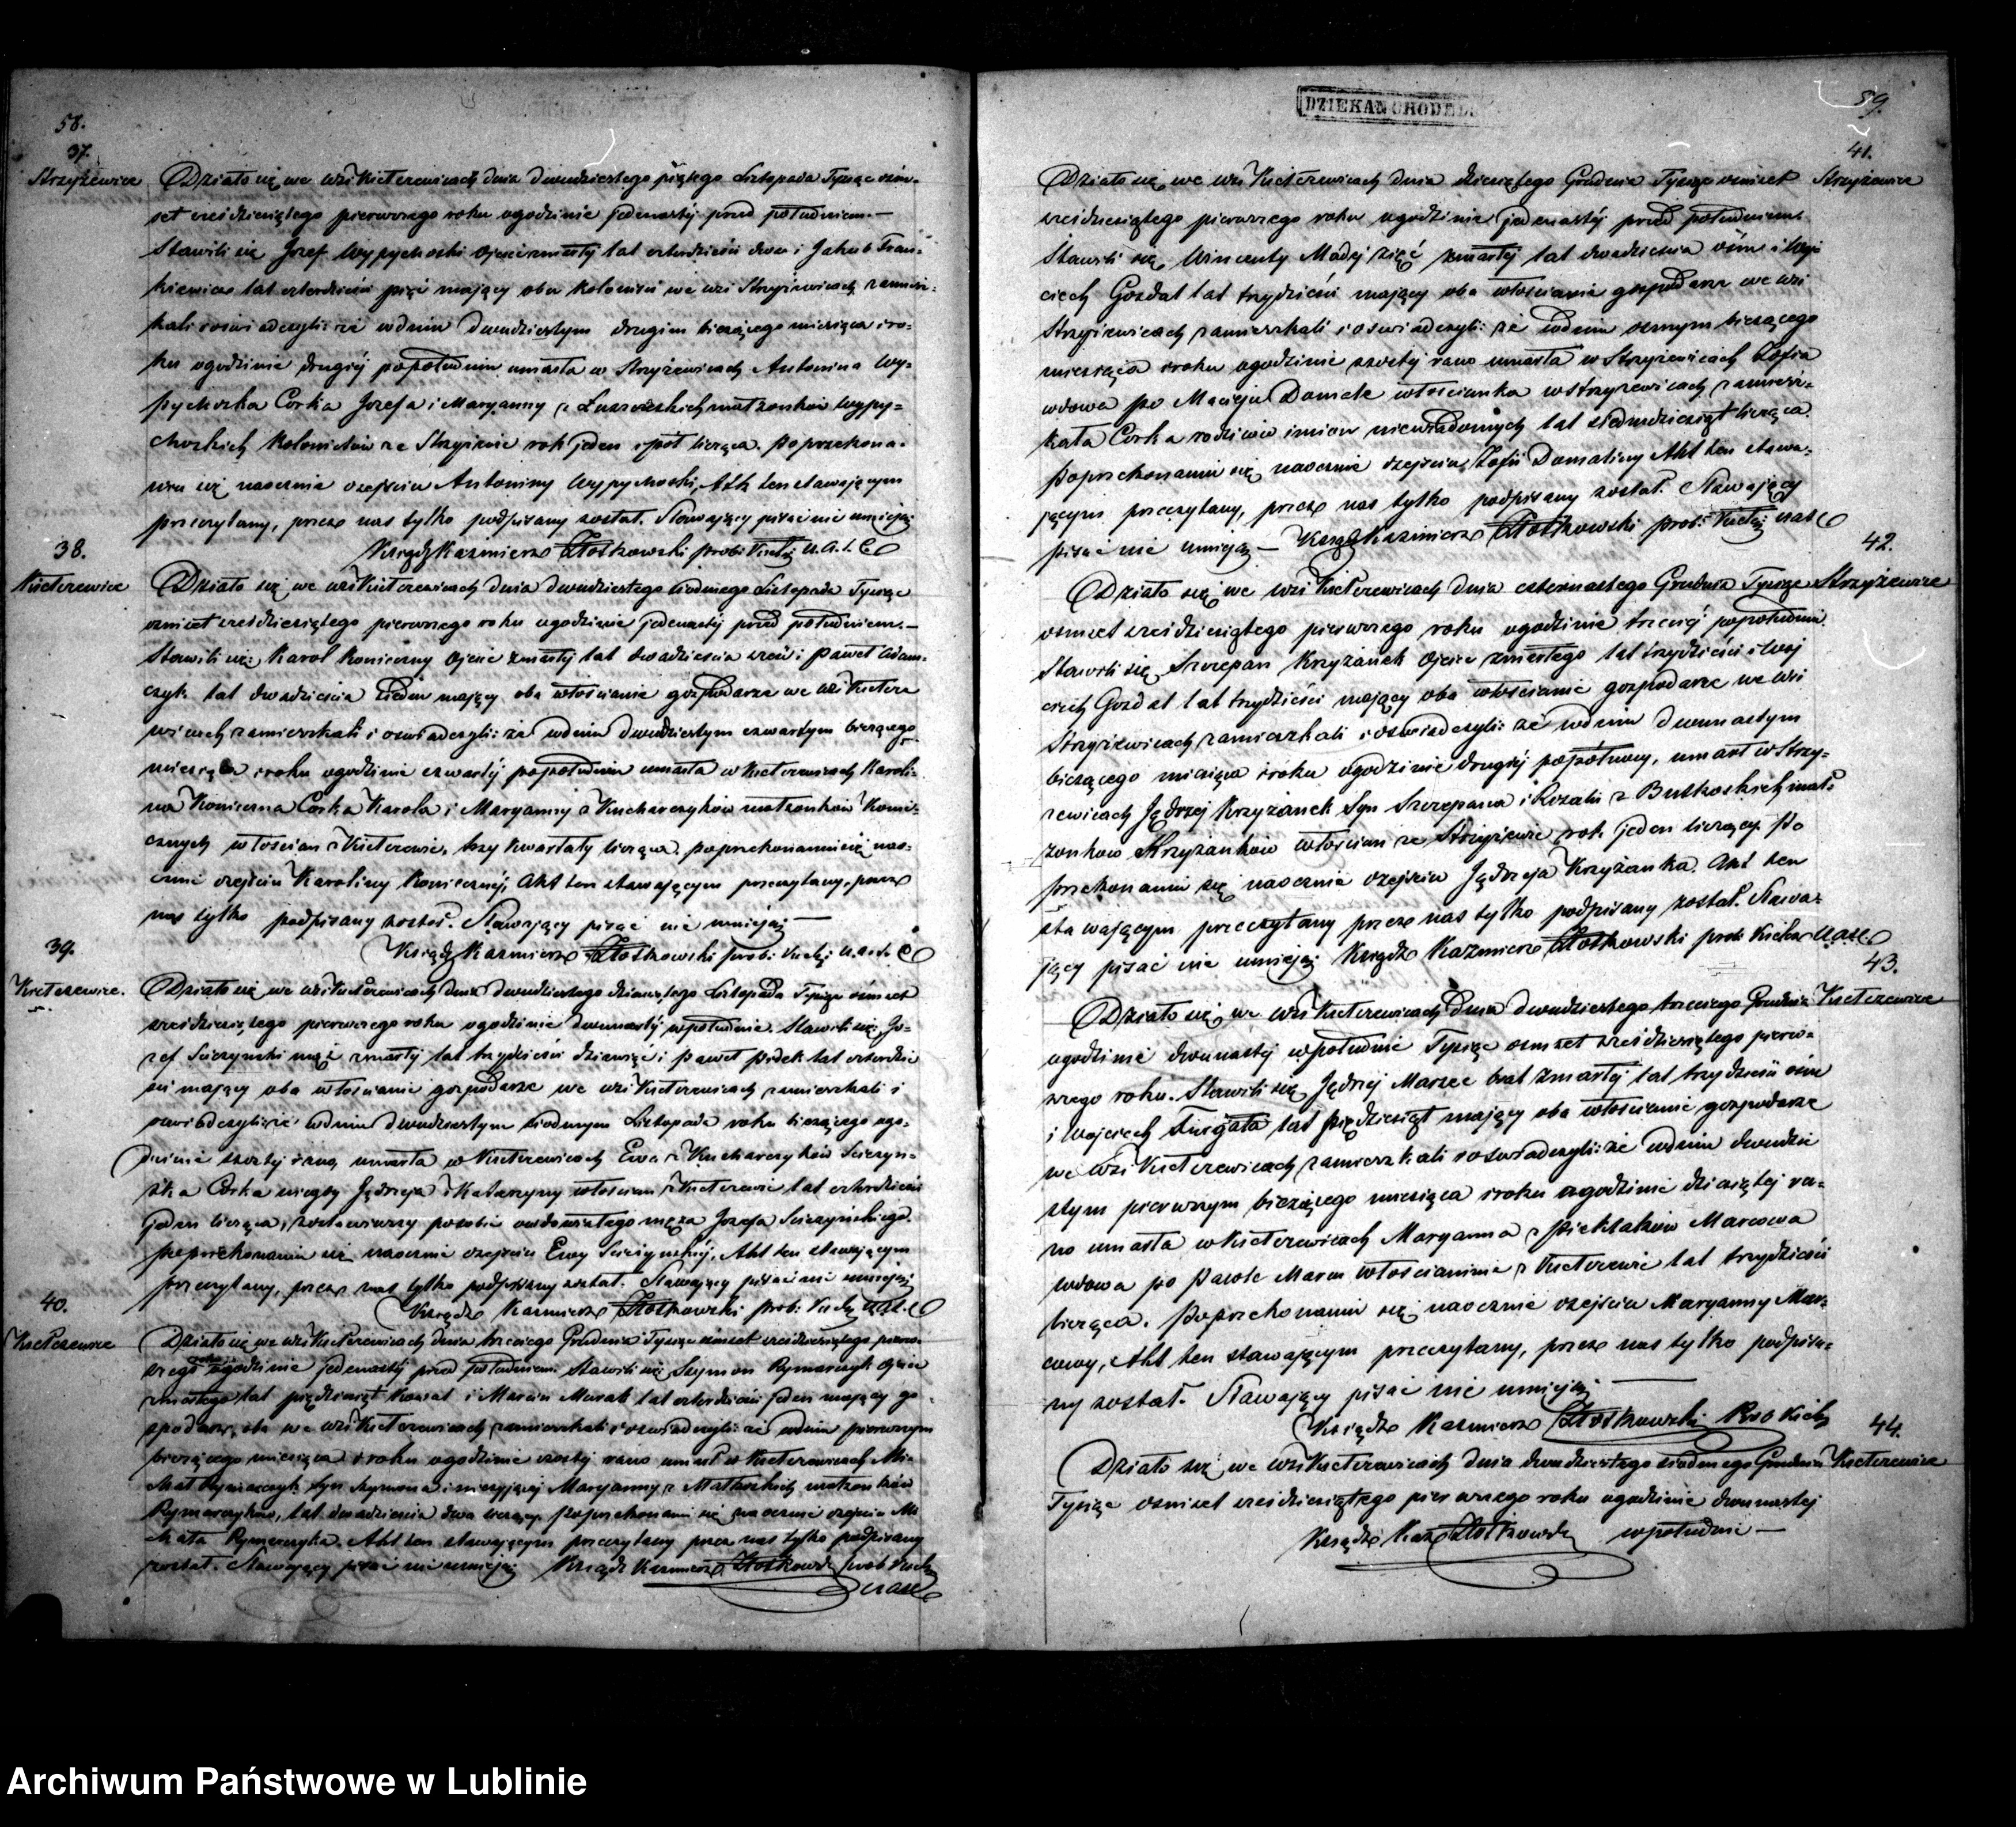 58.
37.
Strzyżewice
Działo się we wsi Kiełczewicach dnia dwudziestego piątego Listopada Tysiąc ośm-
set sześćdziesiątego pierwszego roku o godzinie jedenastéj przed południem.—
Stawili się Jozef Wypychoski Ojciec zmarłéj lat czterdzieści dwa i Jakub Fran-
kiewicz lat czterdzieści pięć mający oba koloniści we wsi Strzyżewicach zamiesz-
kali i oświadczyli: że w dniu dwudziestym drugim bieżącego miesiąca i ro-
ku o godzinie drugiéj po południu umarła w Strzyżewicach Antonina Wy-
pychoska Corka Jozefa i Maryanny z małżonków Wypy-
choskich Kolonistów ze Strzyżewic rok jeden i pół licząca. Po przekona-
niu się naocznie o zejściu Antoniny Wypychoski, Akt ten stawającym
przeczytany, przez nas tylko podpisany został. Stawający pisać nie umieją
Ksiądz Kazimierz Złotkowski prob: Kieł: U.A.S.C.
38.
Kiełczewice
Działo się we wsi Kiełczewicach dnia dwudziestego siodmego Listopada Tysiąc
osmset sześćdziesiątego pierwszego roku o godzinie jedenastéj przed południem.—
Stawili się: Karol Konieczny Ojciec zmarłéj lat dwadzieścia sześć i Paweł Adam-
czyk lat dwadzieścia siedm mający oba włościanie gospodarze we wsi Kiełcze
wicach zamieszkali i oświadczyli: że w dniu dwudziestym czwartym bieżącego
miesiąca i roku o godzinie czwartéj po południu umarła w Kiełczewicach Karoli-
na Konieczna Corka Karola i Maryanny z Kucharczyków małżonków Konie-
cznych włościan z Kiełczewic, trzy kwartały licząca. Po przekonaniu się nao-
cznie o zejściu Karoliny Koniecznéj, Akt ten stawającym przeczytany, przez
nas tylko podpisany został. Stawający pisać nie umieją —
Ksiądz Kazimierz Złotkowski prob: Kieł: U.A.S.C.
39.
Kiełczewice.
Działo się we wsi Kiełczewicach dnia dwudziestego dziewiątego Listopada Tysiąc ośmset
sześćdziesiątego pierwszego roku o godzinie dwunastéj w południe. Stawili się: Jo-
zef Sieczynski mąż zmarłéj lat trzydzieści dziewięć i Paweł Pidek lat czterdzie
ści mający oba włościanie gospodarze we wsi Kiełczewicach zamieszkali i
oświadczyli: że w dniu dwudziestym siodmym Listopada roku bieżącego o go-
dzinie szostéj rano, umarła w Kiełczewicach Ewa z Kucharczyków Sieczyn-
ska Corka niegdy Jędrzeja i Katarzyny włościan z Kiełczewic lat czterdzieści
jeden licząca, zostawiwszy po sobie owdowiałego męża Jozefa Sieczyńskiego.
Po przekonaniu się naocznie o zejściu Ewy Sieczynskiéj, Akt ten stawającym
przeczytany, przez nas tylko podpisany został. Stawający pisać nie umieją
Ksiądz Kazimierz Złotkowski prob: Kieł: U.A.S.C.
40.
Kiełczewice
Działo się we wsi Kiełczewicach dnia trzeciego Grudnia Tysiąc ośmset sześćdziesiątego pierw-
szego roku o godzinie jedenastéj przed południem. Stawili się Szymon Rymarczyk ojciec
zmarłego lat pięćdziesiąt i Marcin lat czterdzieści jeden mający go-
spodarze oba we wsi Kiełczewicach zamieszkali i oświadczyli: że w dniu pierwszym
bieżącego miesiąca i roku o godzinie szostéj rano umarł w Kiełczewicach Mi-
chał Rymarczyk syn Szymona i nieżyjącéj Maryanny z małżonków
Rymarczyków, lat dwadzieścia dwa liczący. Po przekonaniu się naocznie o zejściu Mi
chała Rymarczyka. Akt ten stawającym przeczytany przez nas tylko podpisany
został. Stawający pisać nie umieją Ksiądz Kazimierz Złotkowski prob Kieł
U.A.S.C.
DZIEKAN CHODEL.
59.
41.
Strzyżewice
Działo się we wsi Kiełczewicach dnia dziesiątego Grudnia Tysiąc osmset
sześćdziesiątego pierwszego roku o godzinie jedenastéj przed południem
Stawili się, Wincenty Madej zięć zmarłéj lat dwadzieścia ośm i Woj-
ciech Gozdal lat trzydzieści mający oba włościanie gospodarze we wsi
Strzyżewicach zamieszkali i oświadczyli: że w dniu osmym bieżącego
miesiąca i roku o godzinie szostéj rano umarła w Strzyżewicach Zofia
wdowa po Macieju włościanka w Strzyżewicach zamiesz-
kała Corka rodziców imion niewiadomych lat siedmdziesiąt licząca.
Po przekonaniu się naocznie o zejściu, Zofii Akt ten stawa-
jącym przeczytany, przez nas tylko podpisany został. Stawający
pisać nie umieją — Ksiądz Kazimierz Złotkowski prob: Kieł: U.A.S.C.
42.
Strzyżewice
Działo się we wsi Kiełczewicach dnia czternastego Grudnia Tysiąc
osmset sześćdziesiątego pierwszego roku o godzinie trzeciéj po południu
Stawili się Szczepan Krzyżanek Ojciec zmarłego lat trzydzieści i Woj
ciech Gozdal lat trzydzieści mający oba włościanie gospodarze we wsi
Strzyżewicach zamieszkali i oświadczyli: że w dniu dwunastym
bieżącego miesiąca i roku o godzinie drugiéj po północy, umarł w Strzy-
żewicach Jędrzej Krzyżanek Syn Szczepana i Rozalii z Butkoskich mał-
żonkow Krzyżanków włościan ze Strzyżewic rok jeden liczący. Po
przekonaniu się naocznie o zejściu Jędrzeja Krzyżanka. Akt ten
stawającym przeczytany przez nas tylko podpisany został. Stawa-
jący pisać nie umieją Ksiądz Kazimierz Złotkowski prob: Kiełcz U.A.S.C.
43.
Kiełczewice
Działo się we wsi Kiełczewicach dnia dwudziestego trzeciego Grudnia
o godzinie dwunastéj w południe Tysiąc osmset sześćdziesiątego pierw-
szego roku. Stawili się Jędrzej Marzec brat zmarłéj lat trzydzieści ośm
i Wojciech lat pięćdziesiąt mający oba włościanie gospodarze
we wsi Kiełczewicach zamieszkali i oświadczyli: że w dniu dwudzie
stym pierwszym bieżącego miesiąca i roku o godzinie dziesiątéj ra-
no umarła w Kiełczewicach Maryanna z Piekłaków Marcowa
wdowa po Pawle Marcu włościaninie z Kiełczewic lat trzydzieści
licząca. Po przekonaniu się naocznie o zejściu Maryanny Mar-
cowy, Akt ten stawającym przeczytany, przez nas tylko podpisa-
ny został. Stawający pisać nie umieją —
Ksiądz Kazimierz Złotkowski Prob Kieł:
44.
Kiełczewice
Działo się we wsi Kiełczewicach dnia dwudziestego siodmego Grudnia
Tysiąc osmset sześćdziesiątego pierwszego roku o godzinie dwunastej
Ksiądz Kaz Złotkowski w południe —
Archiwum Państwowe w Lublinie